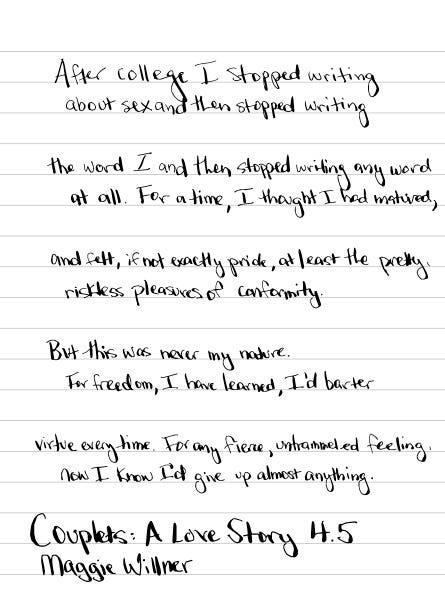 After college I stopped writing
about sex and then stopped writing
the word I and then stopped writing any word
at all. For a time, I thought I had matured,
and felt, if not exactly pride, at least the pretty,
riskless pleasures of conformity.
But this was never my nature.
For freedom, I have learned, I'd barter
virtue every time. For any fierce, untrammeled feeling.
now I know I'd give up almost anything.
Couplets: A Love Story 4.5
Maggie Willner